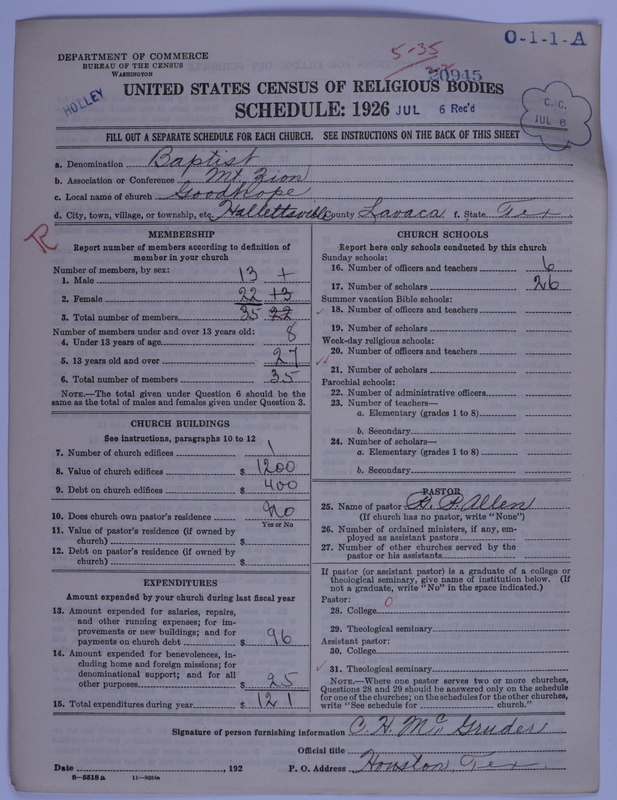 O-1-1-A
5-35
DEPARTMENT OF COMMERCE
BUREAU OF THE CENSUS
WASHINGTON
20945
HOLLEY
UNITED STATES CENSUS OF RELIGIOUS BODIES
SCHEDULE: 1926 JUL 6 Rec'd
C.C.
JUL 6
FILL OUT A SEPARATE SCHEDULE FOR EACH CHURCH. SEE INSTRUCTIONS ON THE BACK OF THIS SHEET
a. Denomination Baptist
b. Association or Conference Mt. Zion
c. Local name of church Goodhope
d. City, town, village, or township, etc. Hallettsville County Lavaca f. State Tex
R
MEMBERSHIP
Report number of members according to definition of
member in your church
Number of members, by sex:
1. Male 13 +
2. Female 22 +3
3. Total number of members 35 22
Number of members under and over 13 years old:
4. Under 13 years of age 8
5. 13 years old and over 27
6. Total number of members 35
NOTE.—The total given under Question 6 should be the
same as the total of males and females given under Question 3.
CHURCH BUILDINGS
See instructions, paragraphs 10 to 12
7. Number of church edifices 1
8. Value of church edifices $ 1200
9. Debt on church edifices $ 400
10. Does church own pastor's residence No
Yes or No
11. Value of pastor's residence (if owned by
church) $
12. Debt on pastor's residence (if owned by
church) $
EXPENDITURES
Amount expended by your church during last fiscal year
13. Amount expended for salaries, repairs,
and other running expenses; for im-
provements or new buildings; and for
payments on church debt $ 96
14. Amount expended for benevolences, in-
cluding home and foreign missions; for
denominational support; and for all
other purposes $ 25
15. Total expenditures during year $ 121
CHURCH SCHOOLS
Report here only schools conducted by this church
Sunday schools:
16. Number of officers and teachers 6
17. Number of scholars 26
Summer vacation Bible schools:
18. Number of officers and teachers
19. Number of scholars
Week-day religious schools:
20. Number of officers and teachers
21. Number of scholars
Parochial schools:
22. Number of administrative officers
23. Number of teachers—
a. Elementary (grades 1 to 8)
b. Secondary
24. Number of scholars—
a. Elementary (grades 1 to 8)
b. Secondary
PASTOR
25. Name of pastor H. P. Allen
(If church has no pastor, write "None")
26. Number of ordained ministers, if any, em-
ployed as assistant pastors
27. Number of other churches served by the
pastor or his assistants
If pastor (or assistant pastor) is a graduate of a college or
theological seminary, give name of institution below. (If
not a graduate, write "No" in the space indicated.)
Pastor:
28. College 0
29. Theological seminary
Assistant pastor:
30. College
31. Theological seminary
NOTE.—Where one pastor serves two or more churches,
Questions 28 and 29 should be answered only on the schedule
for one of the churches; on the schedules for the other churches,
write "See schedule for church."
Signature of person furnishing information C. H. McGruder
Official title
Date , 192 P. O. Address Houston, Tex.
8—5518a 11—9354a